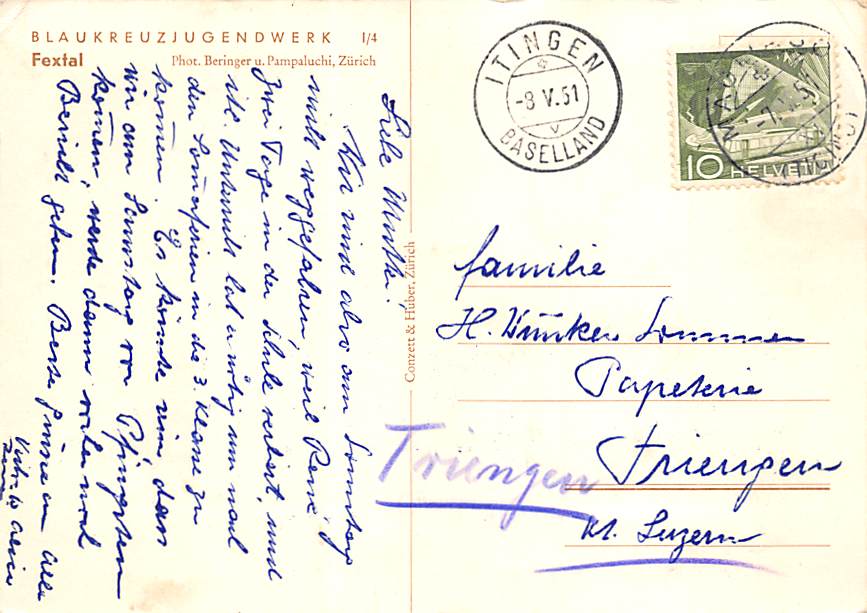 BLAUKREUZJUGENDWERK I/4
Fextal Phot. Beringer u. Pampaluchi, Zürich
Liebe Mutti!
Wir sind also am Sonntag
nicht weggefahren, weil René
zwei Tage in der Schule verliert, und
Unterricht hat er nötig um nach
den Sommerferien in die 3. Klasse zu
kommen. Es könnte sein dass
wir am Samstag vor Pfingsten
kommen, werde dann vorher noch
Bericht geben. Beste Grüsse an alle
Conzett & Huber, Zürich
ITINGEN
-8 V. 51
V
BASELLAND
10 HELVETIA
Familie
H. Winiker Sommer
Papeterie
Triengen
Kt. Luzern
Triengen